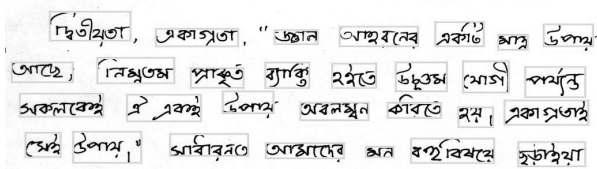 দ্বিতীয়তা, একাগ্রতা, "জ্ঞান আহরনের একটি মাত্র উপায়
আছে, নিম্নতম প্রাকৃত ব্যাক্তি হইতে উচ্চতম যোগী পর্যন্ত
সকলকেই ঐ একই উপায় অবলম্বন করিতে হয়। একাগ্রতাই
সেই উপায়।" সাধারনত আমাদের মন বহুবিষয়ে ছড়াইয়া